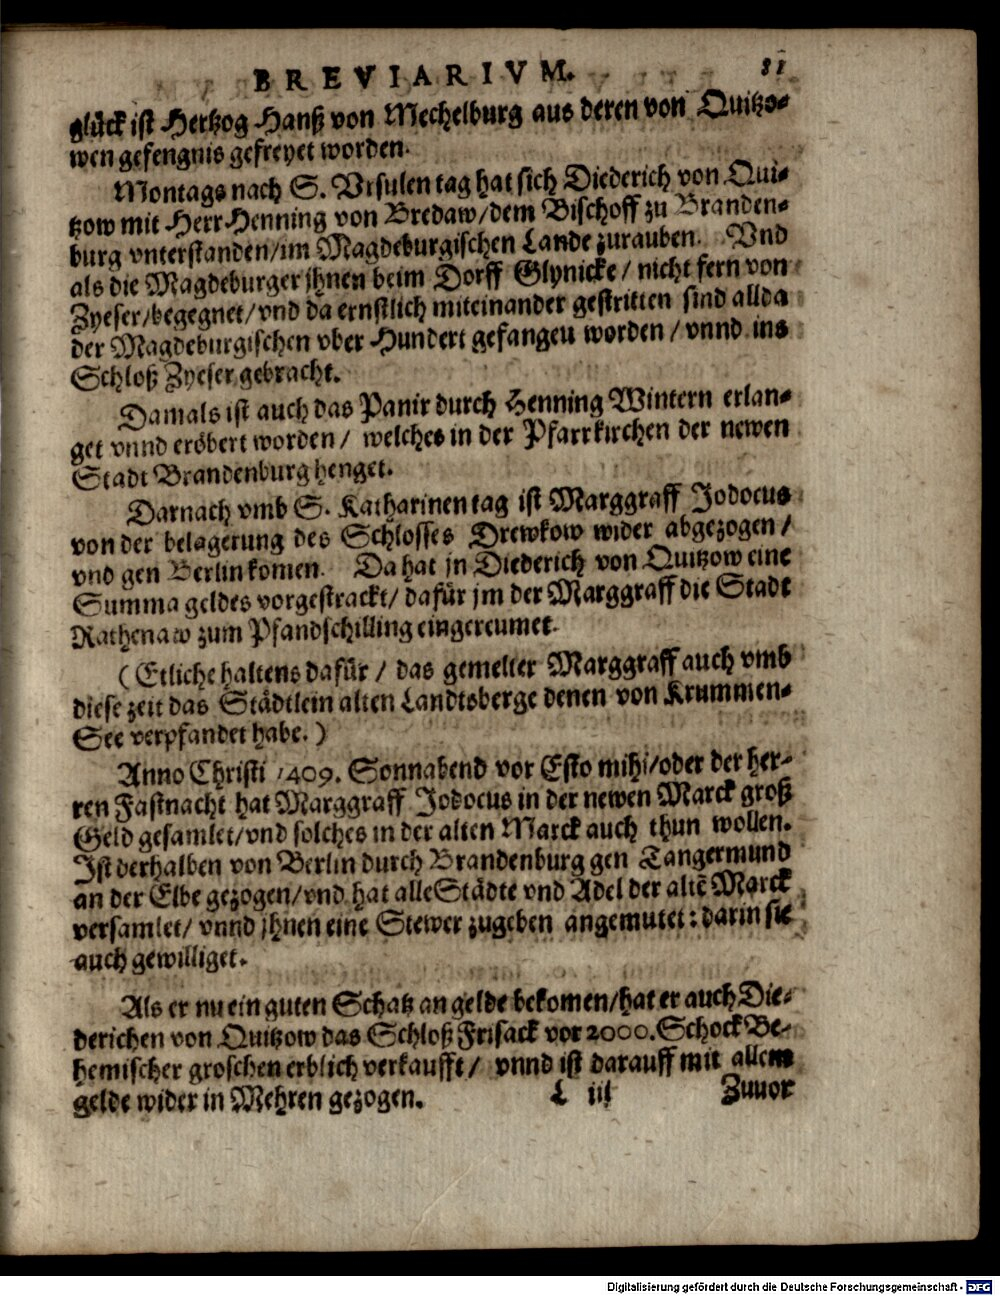 BREVIARIVM. 81
glück ist Hertzog Hanß von Mechelburg aus deren von Quitzo-
wen gefengnis gefreyet worden.
Montags nach S. Vrsulen tag hat sich Diederich von Qui-
tzow mit Herr Henning von Bredaw/dem Bischoff zu Branden-
burg vnterstanden/im Magdeburgischen Lande zurauben. Vnd
als die Magdeburger jhnen beim Dorff Glynicke / nicht fern von
Zyeser/begegnet/vnd da ernstlich miteinander gestritten sind allda
der Magdeburgischen vber Hundert gefangen worden / vnnd ins
Schloß Zyeser gebracht.
Damals ist auch das Panir durch Henning Wintern erlan-
get vnnd eröbert worden / welches in der Pfarrkirchen der newen
Stadt Brandenburg henget.
Darnach vmb S. Katharinen tag ist Marggraff Jodocus
von der belagerung des Schlosses Drewkow wider abgezogen /
vnd gen Berlin komen. Da hat jn Diederich von Quitzow eine
Summa geldes vorgestrackt/ dafür jm der Marggraff die Stadt
Rathenaw zum Pfandschilling eingereumet.
(Etliche haltens dafür / das gemelter Marggraff auch vmb
diese zeit das Städtlein alten Landtsberge denen von Krummen-
See verpfandet habe.)
Anno Christi 1409. Sonnabend vor Esto mihi/oder der her-
ren Fastnacht hat Marggraff Jodocus in der newen Marck groß
Geld gesamlet/vnd solches in der alten Marck auch thun wollen.
Ist derhalben von Berlin durch Brandenburg gen Tangermund
an der Elbe gezogen/vnd hat alle Städte vnd Adel der altē Marck
versamlet/ vnnd jhnen eine Stewer zugeben angemutet: darin sie
auch gewilliget.
Als er nu ein guten Schatz an gelde bekomen/hat er auch Die-
derichen von Quitzow das Schloß Frisack vor 2000. Schock Be-
hemischer groschen erblich verkaufft / vnnd ist darauff mit allem
gelde wider in Mehren gezogen. L iij Zuuor
Digitalisierung gefördert durch die Deutsche Forschungsgemeinschaft - DFG